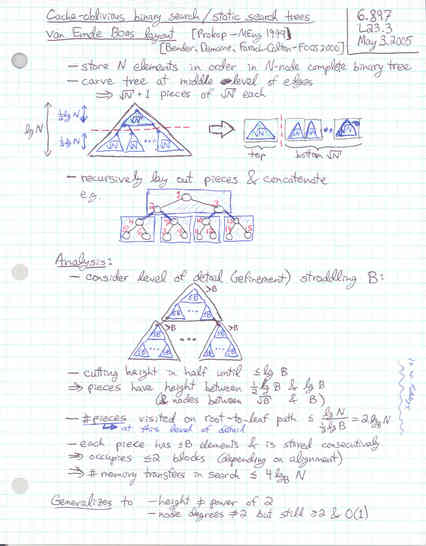 Cache-oblivious binary search/static search trees
6.897
van Emde Boas layout [Prokop - MEng 1999]
L23.3
[Bender, Demaine, Farach-Colton - FOCS 2000]
May 3, 2005
- store N elements in order in N-node complete binary tree
- carve tree at middle level of edges
⇒ √N + 1 pieces of √N each
lg N
½ lg N
½ lg N
√N
√N √N
√N √N √N
top
bottom √N
- recursively lay out pieces & concatenate
e.g.
Analysis:
- consider level of detail (refinement) straddling B:
>B
≤B
≤B ... ≤B
>B >B
≤B ≤B
≤B ... ≤B ... ≤B ... ≤B
- cutting height in half until ≤ lg B
⇒ pieces have height between ½ lg B & lg B
(& nodes between √B & B)
- # pieces visited on root-to-leaf path ≤ lg N / ½ lg B = 2 log_B N
↳ at this level of detail
- each piece has ≤B elements & is stored consecutively
⇒ occupies ≤2 blocks (depending on alignment)
⇒ # memory transfers in search ≤ 4 log_B N
Generalizes to - height ≠ power of 2
- node degrees ≠ 2 but still ≥2 & O(1)